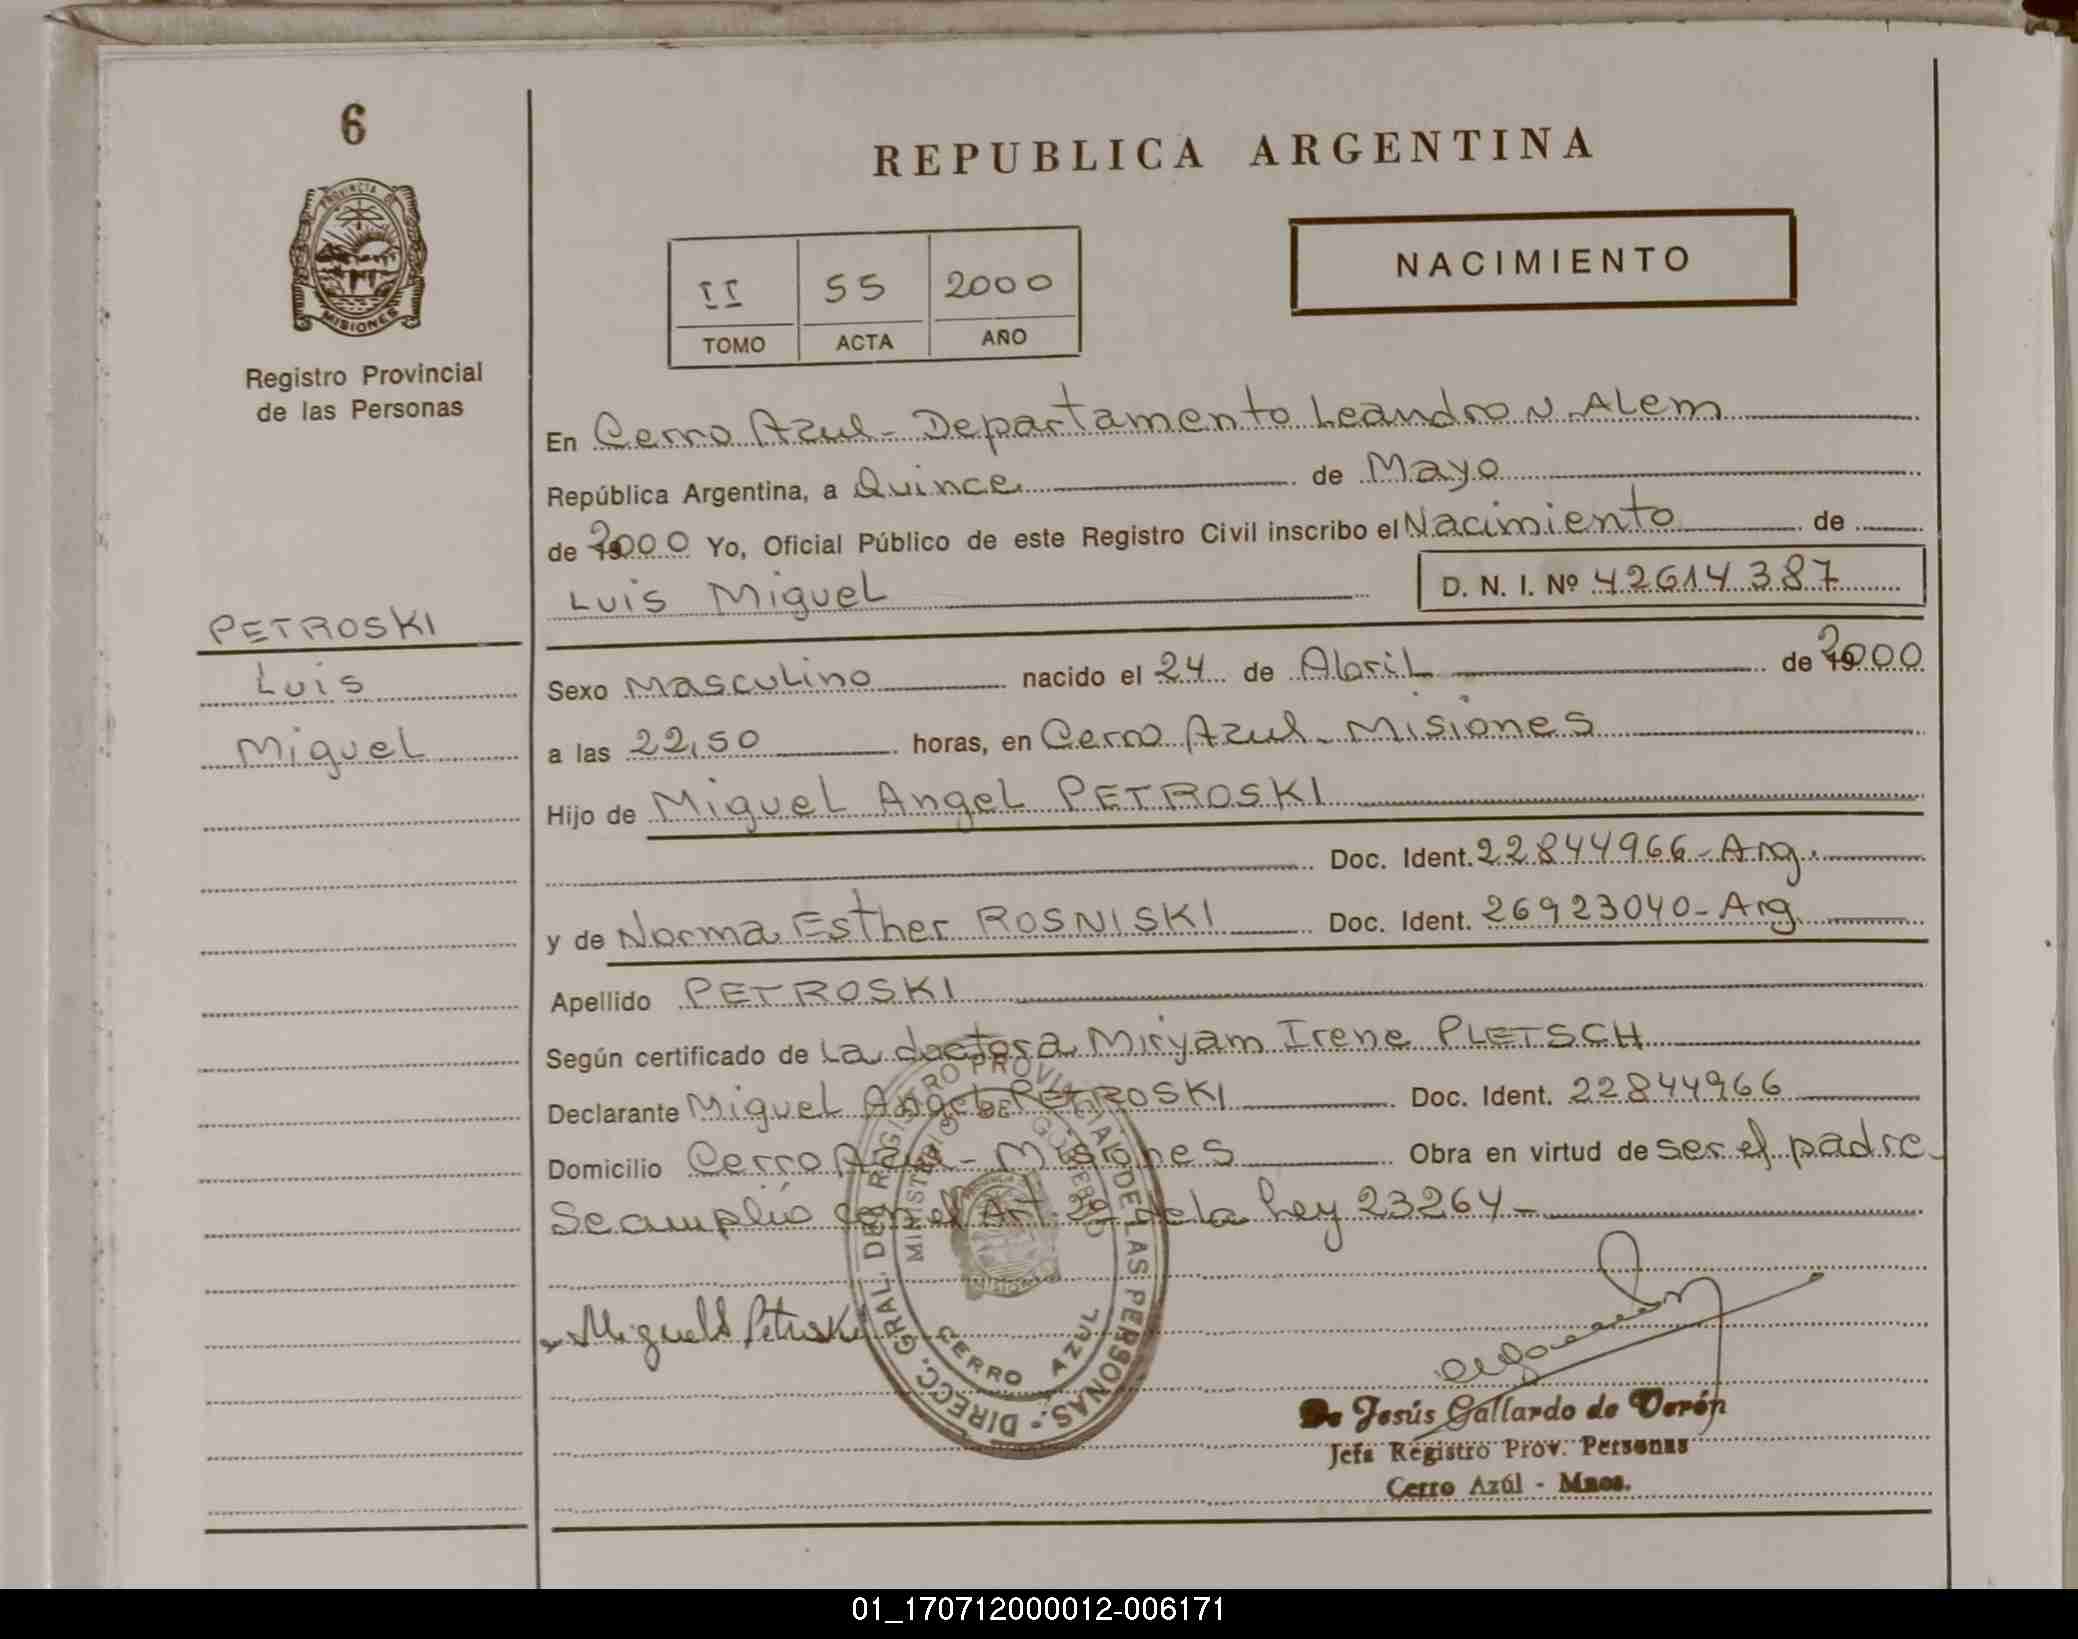 6
PROVINCIA DE
MISIONES
Registro Provincial
de las Personas
PETROSKI
Luis
Miguel
REPUBLICA ARGENTINA
II 55 2000
TOMO ACTA AÑO
NACIMIENTO
En Cerro Azul - Departamento Leandro N. Alem
República Argentina, a Quince de Mayo
de 2000 Yo, Oficial Público de este Registro Civil inscribo el Nacimiento de
Luis Miguel D. N. I. Nº 42614387
Sexo Masculino nacido el 24 de Abril de 2000
a las 22,50 horas, en Cerro Azul - Misiones
Hijo de Miguel Angel PETROSKI
Doc. Ident. 22844966 - Arg.
y de Norma Esther ROSNISKI Doc. Ident. 26923040 - Arg
Apellido PETROSKI
Según certificado de la doctora Miryam Irene PLETSCH
Declarante Miguel Angel PETROSKI Doc. Ident. 22844966
Domicilio Cerro Azul - Misiones Obra en virtud de ser el padre -
Se amplió con el Art. de la Ley 23264 -
Miguel A Petroski
DIRECC. GRAL. DEL REGISTRO PROVINCIAL DE LAS PERSONAS.-
MINISTERIO DE GOBIERNO
MISIONES
CERRO AZUL
De Jesús Gallardo de Verón
Jefa Registro Prov. Personas
Cerro Azúl - Mnes.
01_170712000012-006171